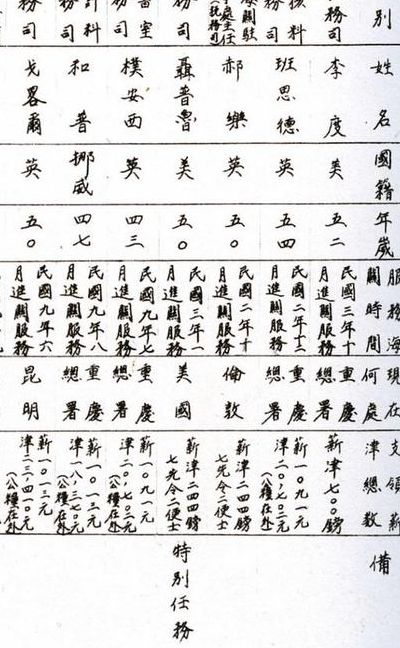 別
姓名
國籍
年歲
服務海
關時間
現在
何處
支領薪
津總數
備
務司
李度
美
五二
民國三年十
月進關服務
重慶
總署
薪津七〇〇鎊
科
務司
班思德
英
五四
民國二年十二
月進關服務
重慶
總署
薪一〇九一元
津二〇、七〇二元
(公糧在外
郝樂
英
五〇
民國二年十
月進關服務
倫敦
薪津二四四鎊
七先令二便士
務司
聶普魯
美
五〇
民國三年一
月進關服務
美國
薪津二四四鎊
七先令二便士
特別任務
室
務司
樸安西
英
四三
民國九年七
月進關服務
重慶
總署
薪一〇九一元
津二〇、七〇二元
(公糧在外
計科
務司
和普
挪威
四七
民國九年八
月進關服務
重慶
總署
薪一〇一三元
津一八、三七〇元
(公糧在外
務司
戈畧爾
英
五〇
民國九年六
月進關服務
昆明
薪一〇一三元
津一三、四一〇元
(公糧在外